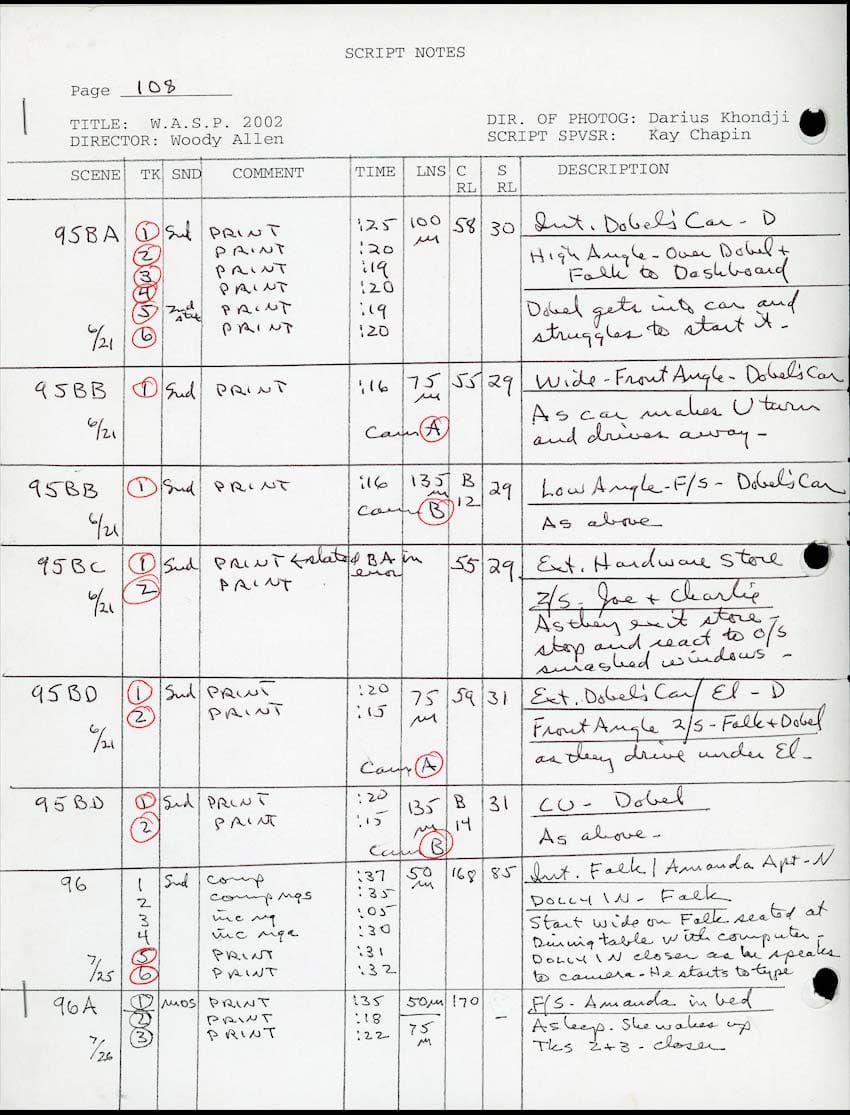 SCRIPT NOTES
Page 108
TITLE: W.A.S.P. 2002 DIR. OF PHOTOG: Darius Khondji
DIRECTOR: Woody Allen SCRIPT SPVSR: Kay Chapin
SCENE TK SND COMMENT TIME LNS C RL S RL DESCRIPTION
95BA 1 Snd PRINT :25 100 m 58 30 Int. Dobel's Car - D
2 PRINT :20 High Angle - Over Dobel +
3 PRINT :19 Falk to Dashboard
4 PRINT :20
5 2nd stk PRINT :19 Dobel gets into car and
6/21 6 PRINT :20 struggles to start it -
95BB 1 Snd PRINT :16 75 m 55 29 Wide - Front Angle - Dobel's Car
6/21 Cam A As car makes U turn
and drives away -
95BB 1 Snd PRINT :16 135 m B 12 29 Low Angle - F/S - Dobel's Car
6/21 Cam B As above
95BC 1 Snd PRINT ← slated BA in error 55 29 Ext. Hardware Store
6/21 2 PRINT 2/S - Joe + Charlie
As they exit store -
stop and react to O/S
smashed windows -
95BD 1 Snd PRINT :20 75 m 59 31 Ext. Dobel's Car/ El - D
2 PRINT :15 Front Angle 2/S - Falk + Dobel
6/21 Cam A as they drive under El -
95BD 1 Snd PRINT :20 135 m B 14 31 CU - Dobel
2 PRINT :15 As above -
Cam B
96 1 Snd comp :37 50 m 168 85 Int. Falk / Amanda Apt - N
2 comp ngs :35 DOLLY IN - Falk
3 inc ng :05 Start wide on Falk seated at
4 inc nge :30 Dining table with computer -
7/25 5 PRINT :31 DOLLY IN closer as he speaks
6 PRINT :32 to camera - He starts to type
96A 1 MOS PRINT :35 50m 170 F/S - Amanda in bed
2 PRINT :18 - Asleep. She wakes up
7/26 3 PRINT :22 75 m Tks 2+3 - closer